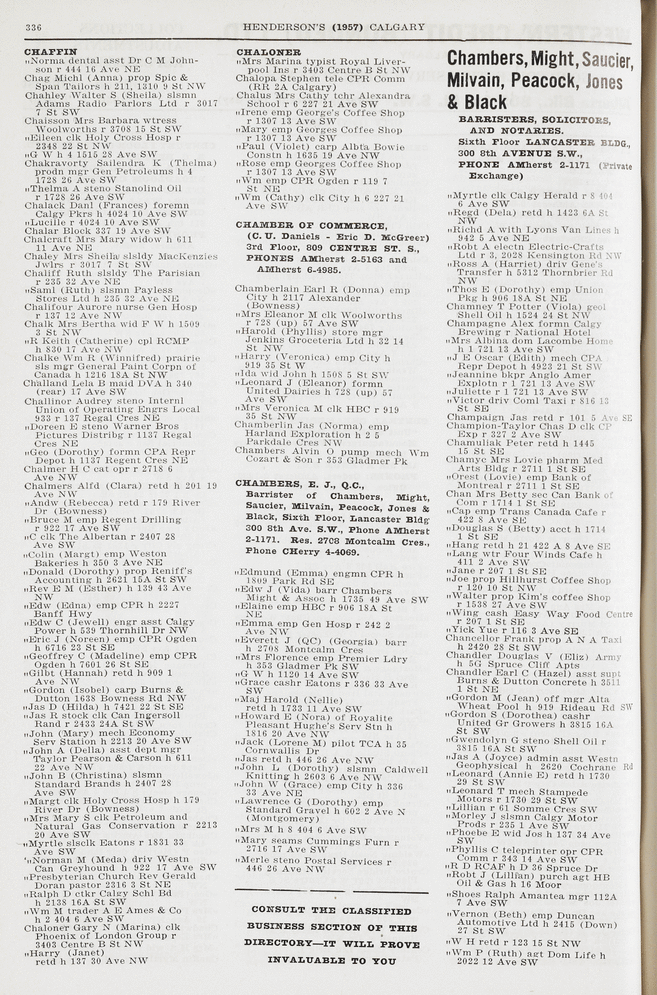 336
HENDERSON'S (1957) CALGARY
CHAFFIN
„Norma dental asst Dr C M John-
son r 444 16 Ave NE
Chag Michl (Anna) prop Spic &
Span Tailors h 211, 1310 9 St NW
Chahley Walter S (Sheila) slsmn
Adams Radio Parlors Ltd r 3017
7 St SW
Chaisson Mrs Barbara wtress
Woolworths r 3708 15 St SW
„Eileen clk Holy Cross Hosp r
2348 22 St NW
„G W h 4 1515 28 Ave SW
Chakravorty Sailendra K (Thelma)
prodn mgr Gen Petroleums h 4
1728 26 Ave SW
„Thelma A steno Stanolind Oil
r 1728 26 Ave SW
Chalack Danl (Frances) foremn
Calgy Pkrs h 4024 10 Ave SW
„Lucille r 4024 10 Ave SW
Chalar Block 337 19 Ave SW
Chalcraft Mrs Mary widow h 611
11 Ave NE
Chaley Mrs Sheila slsldy MacKenzies
Jwlrs r 3017 7 St SW
Chaliff Ruth slsldy The Parisian
r 235 32 Ave NE
„Saml (Ruth) slsmn Payless
Stores Ltd h 235 32 Ave NE
Chalifour Aurore nurse Gen Hosp
r 137 12 Ave NW
Chalk Mrs Bertha wid F W h 1509
3 St NW
„R Keith (Catherine) cpl RCMP
h 830 17 Ave NW
Chalke Wm R (Winnifred) prairie
sls mgr General Paint Corpn of
Canada h 1216 18A St NW
Challand Lela B maid DVA h 340
(rear) 17 Ave SW
Challinor Audrey steno Internl
Union of Operating Engrs Local
933 r 137 Regal Cres NE
„Doreen E steno Warner Bros
Pictures Distribg r 1137 Regal
Cres NE
„Geo (Dorothy) formn CPA Repr
Depot h 1137 Regent Cres NE
Chalmer H C cat opr r 2718 6
Ave NW
Chalmers Alfd (Clara) retd h 201 19
Ave NW
„Andw (Rebecca) retd r 179 River
Dr (Bowness)
„Bruce M emp Regent Drilling
r 922 17 Ave SW
„C clk The Albertan r 2407 28
Ave SW
„Colin (Margt) emp Weston
Bakeries h 350 3 Ave NE
„Donald (Dorothy) prop Reniff's
Accounting h 2621 15A St SW
„Rev E M (Esther) h 139 43 Ave
NW
„Edw (Edna) emp CPR h 2227
Banff Hwy
„Edw C (Jewell) engr asst Calgy
Power h 539 Thornhill Dr NW
„Eric J (Noreen) emp CPR Ogden
h 6716 23 St SE
„Geoffrey C (Madeline) emp CPR
Ogden h 7601 26 St SE
„Gilbt (Hannah) retd h 909 1
Ave NW
„Gordon (Isobel) carp Burns &
Dutton 1638 Bowness Rd NW
„Jas D (Hilda) h 7421 22 St SE
„Jas R stock clk Can Ingersoll
Rand r 2433 24A St SW
„John (Mary) mech Economy
Serv Station h 2213 20 Ave SW
„John A (Della) asst dept mgr
Taylor Pearson & Carson h 611
22 Ave NW
„John B (Christina) slsmn
Standard Brands h 2407 28
Ave SW
„Margt clk Holy Cross Hosp h 179
River Dr (Bowness)
„Mrs Mary S clk Petroleum and
Natural Gas Conservation r 2213
20 Ave SW
„Myrtle slsclk Eatons r 1831 33
Ave SW
„Norman M (Meda) driv Westn
Can Greyhound h 922 17 Ave SW
„Presbyterian Church Rev Gerald
Doran pastor 2316 3 St NE
„Ralph D ctkr Calgy Schl Bd
h 2138 16A St SW
„Wm M trader A E Ames & Co
h 2 404 6 Ave SW
Chaloner Gary N (Marina) clk
Phoenix of London Group r
3403 Centre B St NW
„Harry (Janet)
retd h 137 30 Ave NW
CHALONER
„Mrs Marina typist Royal Liver-
pool Ins r 3403 Centre B St NW
Chalopa Stephen tele CPR Comm
(RR 2A Calgary)
Chalus Mrs Cathy tchr Alexandra
School r 6 227 21 Ave SW
„Irene emp George's Coffee Shop
r 1307 13 Ave SW
„Mary emp Georges Coffee Shop
r 1307 13 Ave SW
„Paul (Violet) carp Albta Bowie
Constn h 1635 19 Ave NW
„Rose emp Georges Coffee Shop
r 1307 13 Ave SW
„Wm emp CPR Ogden r 119 7
St NE
„Wm (Cathy) clk City h 6 227 21
Ave SW
CHAMBER OF COMMERCE,
(C. U. Daniels - Eric D. McGreer)
3rd Floor, 809 CENTRE ST. S.,
PHONES AMherst 2-5163 and
AMherst 6-4985.
Chamberlain Earl R (Donna) emp
City h 2117 Alexander
(Bowness)
„Mrs Eleanor M clk Woolworths
r 728 (up) 57 Ave SW
„Harold (Phyllis) store mgr
Jenkins Groceteria Ltd h 32 14
St NW
„Harry (Veronica) emp City h
919 35 St W
„Ida wid John h 1508 5 St SW
„Leonard J (Eleanor) formn
United Dairies h 728 (up) 57
Ave SW
„Mrs Veronica M clk HBC r 919
35 St NW
Chamberlin Jas (Norma) emp
Harland Exploration h 2 5
Parkdale Cres NW
Chambers Alvin O pump mech Wm
Cozart & Son r 353 Gladmer Pk
CHAMBERS, E. J., Q.C.,
Barrister of Chambers, Might,
Saucier, Milvain, Peacock, Jones &
Black, Sixth Floor, Lancaster Bldg
300 8th Ave. S.W., Phone AMherst
2-1171. Res. 2708 Montcalm Cres.,
Phone CHerry 4-4069.
„Edmund (Emma) engmn CPR h
1809 Park Rd SE
„Edw J (Vida) barr Chambers
Might & Assoc h 1735 49 Ave SW
„Elaine emp HBC r 906 18A St
NE
„Emma emp Gen Hosp r 242 2
Ave NW
„Everett J (QC) (Georgia) barr
h 2708 Montcalm Cres
„Mrs Florence emp Premier Ldry
h 353 Gladmer Pk SW
„G W h 1120 14 Ave SW
„Grace cashr Eatons r 336 33 Ave
SW
„Maj Harold (Nellie)
retd h 1733 11 Ave SW
„Howard E (Nora) of Royalite
Pleasant Hughe's Serv Stn h
1816 20 Ave NW
„Jack (Lorene M) pilot TCA h 35
Cornwallis Dr
„Jas retd h 446 26 Ave NW
„John L (Dorothy) slsmn Caldwell
Knitting h 2603 6 Ave NW
„John W (Grace) emp City h 336
33 Ave NE
„Lawrence G (Dorothy) emp
Standard Gravel h 602 2 Ave N
(Montgomery)
„Mrs M h 8 404 6 Ave SW
„Mary seams Cummings Furn r
2716 17 Ave SW
„Merle steno Postal Services r
446 26 Ave NW
CONSULT THE CLASSIFIED
BUSINESS SECTION OF THIS
DIRECTORY—IT WILL PROVE
INVALUABLE TO YOU
Chambers, Might, Saucier,
Milvain, Peacock, Jones
& Black
BARRISTERS, SOLICITORS,
AND NOTARIES.
Sixth Floor LANCASTER BLDG.,
300 8th AVENUE S.W.,
PHONE AMherst 2-1171 (Private
Exchange)
„Myrtle clk Calgy Herald r 8 404
6 Ave SW
„Regd (Dela) retd h 1423 6A St
NW
„Richd A with Lyons Van Lines h
942 5 Ave NE
„Robt A electn Electric-Crafts
Ltd r 3, 2028 Kensington Rd NW
„Ross A (Harriet) driv Gene's
Transfer h 5312 Thornbrier Rd
NW
„Thos E (Dorothy) emp Union
Pkg h 906 18A St NE
Chamney T Potter (Viola) geol
Shell Oil h 1524 24 St NW
Champagne Alex formn Calgy
Brewing r National Hotel
„Mrs Albina dom Lacombe Home
h 1 721 13 Ave SW
„J E Oscar (Edith) mech CPA
Repr Depot h 4923 21 St SW
„Jeannine bkpr Anglo Amer
Explotn r 1 721 13 Ave SW
„Juliette r 1 721 13 Ave SW
„Victor driv Coml Taxi r 816 13
St SE
Champaign Jas retd r 101 5 Ave SE
Champion-Taylor Chas D clk CP
Exp r 327 2 Ave SW
Chamuliak Peter retd h 1445
15 St SE
Chamyc Mrs Lovie pharm Med
Arts Bldg r 2711 1 St SE
„Orest (Lovie) emp Bank of
Montreal r 2711 1 St SE
Chan Mrs Betty sec Can Bank of
Com r 1714 1 St SW
„Cap emp Trans Canada Cafe r
422 8 Ave SE
„Douglas S (Betty) acct h 1714
1 St SW
„Hang retd h 21 422 A 8 Ave SE
„Lang wtr Four Winds Cafe h
411 2 Ave SW
„Jane r 207 1 St SE
„Joe prop Hillhurst Coffee Shop
r 120 10 St NW
„Walter prop Kim's coffee Shop
r 1538 27 Ave SW
„Wing cash Easy Way Food Centre
r 207 1 St SE
„Yick Yue r 116 3 Ave SE
Chancellor Frank prop A N A Taxi
h 2420 28 St SW
Chandler Douglas V (Eliz) Army
h 5G Spruce Cliff Apts
Chandler Earl C (Hazel) asst supt
Burns & Dutton Concrete h 3511
1 St NE
„Gordon M (Jean) off mgr Alta
Wheat Pool h 919 Rideau Rd SW
„Gordon S (Dorothea) cashr
United Gr Growers h 3815 16A
St SW
„Gwendolyn G steno Shell Oil r
3815 16A St SW
„Jas A (Joyce) admin asst Westn
Geophysical h 2620 Cochrane Rd
„Leonard (Annie E) retd h 1730
29 St SW
„Leonard T mech Stampede
Motors r 1730 29 St SW
„Lillian r 61 Somme Cres SW
„Morley J slsmn Calgy Motor
Prods r 235 1 Ave SW
„Phoebe E wid Jos h 137 34 Ave
SW
„Phyllis C teleprinter opr CPR
Comm r 343 14 Ave SW
„R D RCAF h D 36 Spruce Dr
„Robt J (Lillian) purch agt HB
Oil & Gas h 16 Moor
„Shoes Ralph Amantea mgr 112A
7 Ave SW
„Vernon (Beth) emp Duncan
Automotive Ltd h 2415 (Down)
27 St SW
„W H retd r 123 15 St NW
„Wm P (Ruth) agt Dom Life h
2022 12 Ave SW